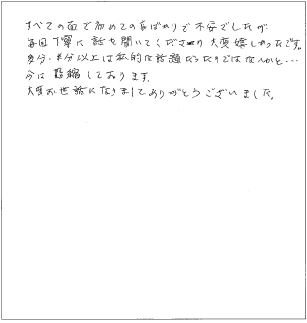 すべての面で初めての事ばかりで不安でしたが
毎回丁寧に話を聞いてくださり大変嬉しかったです。
多分、半分以上は私的な話題だったのではないかと…
今は恐縮しております。
大変お世話になりましてありがとうございました。